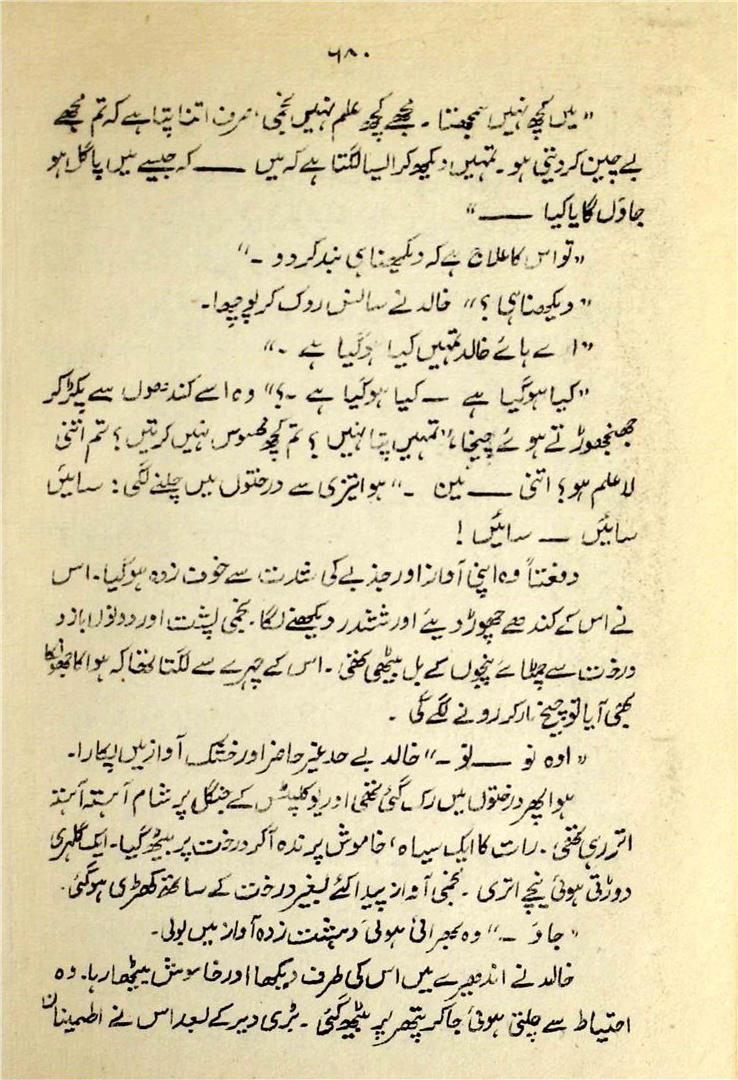 ۶۸۰
"میں کچھ نہیں سمجھتا۔ مجھے کچھ علم نہیں نجمی، صرف اتنا پتا ہے کہ تم مجھے
بے چین کر دیتی ہو۔ تمہیں دیکھ کر ایسا لگتا ہے کہ میں ـــــ کہ جیسے میں پاگل ہو
جاؤں گا یا کیا ـــــ"
"تو اس کا علاج ہے کہ دیکھنا ہی بند کر دو ۔"
"دیکھنا ہی؟" خالد نے سانس روک کر پوچھا۔
"اے ہائے خالد تمہیں کیا ہو گیا ہے ۔"
"کیا ہو گیا ہے ــ کیا ہو گیا ہے ۔؟" وہ اسے کندھوں سے پکڑ کر
جھنجھوڑتے ہوئے چیخا، "تمہیں پتا نہیں؟ تم کچھ محسوس نہیں کرتیں؟ تم اتنی
لا علم ہو؟ اتنی ـــــ مین ۔" ہوا تیزی سے درختوں میں چلنے لگی: سائیں
سائیں ــ سائیں!
دفعتاً وہ اپنی آواز اور جذبے کی شدت سے خوف زدہ ہو گیا۔ اس
نے اس کے کندھے چھوڑ دیئے اور ششدر دیکھنے لگا۔ نجمی پشت اور دونوں بازو
درخت سے چمٹائے پنجوں کے بل بیٹھی تھی۔ اس کے چہرے سے لگتا تھا کہ ہوا کا جھونکا
بھی آیا تو چیخ مار کر رونے لگے گی ۔
"اوہ نو ـــــ نو ۔" خالد بے حد غیر حاضر اور خشک آواز میں پکارا۔
ہوا پھر درختوں میں رک گئی تھی اور یوکلپٹس کے جنگل پر شام آہستہ آہستہ
اتر رہی تھی۔ رات کا ایک سیاہ، خاموش پرندہ آ کر درخت پر بیٹھ گیا۔ ایک گلہری
دوڑتی ہوئی نیچے اتری ۔ نجمی آواز پیدا کئے بغیر درخت کے ساتھ کھڑی ہو گئی۔
"جاؤ ۔" وہ بھرائی ہوئی دہشت زدہ آواز میں بولی۔
خالد نے اندھیرے میں اس کی طرف دیکھا اور خاموش بیٹھا رہا۔ وہ
احتیاط سے چلتی ہوئی جا کر پتھر پر بیٹھ گئی ۔ بڑی دیر کے بعد اس نے اطمینان